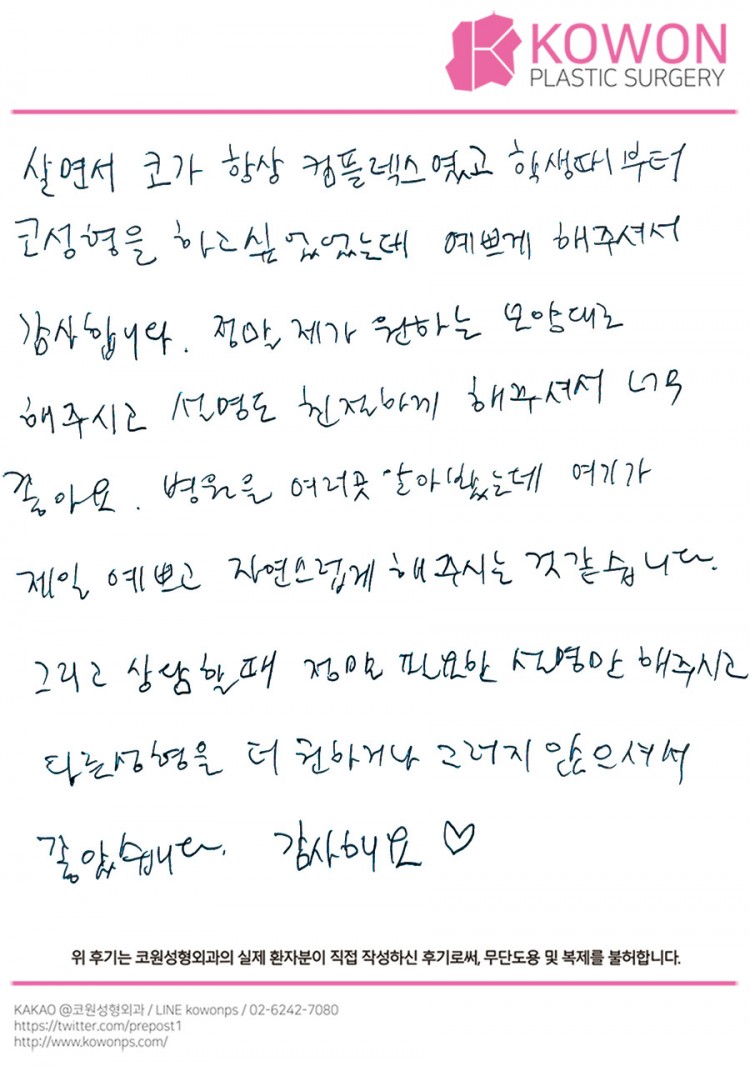 KOWON
PLASTIC SURGERY
살면서 코가 항상 컴플렉스였고 학생때부터
코성형을 하고싶었었는데 예쁘게 해주셔서
감사합니다. 정말 제가 원하는 모양대로
해주시고 설명도 친절하게 해주셔서 너무
좋아요. 병원을 여러곳 알아봤는데 여기가
제일 예쁘고 자연스럽게 해주시는 것같습니다.
그리고 상담할때 정말 필요한 설명만 해주시고
다른성형을 더 권하거나 그러지 않으셔서
좋았습니다. 감사해요 ♡
위 후기는 코원성형외과의 실제 환자분이 직접 작성하신 후기로써, 무단도용 및 복제를 불허합니다.
KAKAO @코원성형외과 / LINE kowonps / 02-6242-7080
https://twitter.com/prepost1
http://www.kowonps.com/